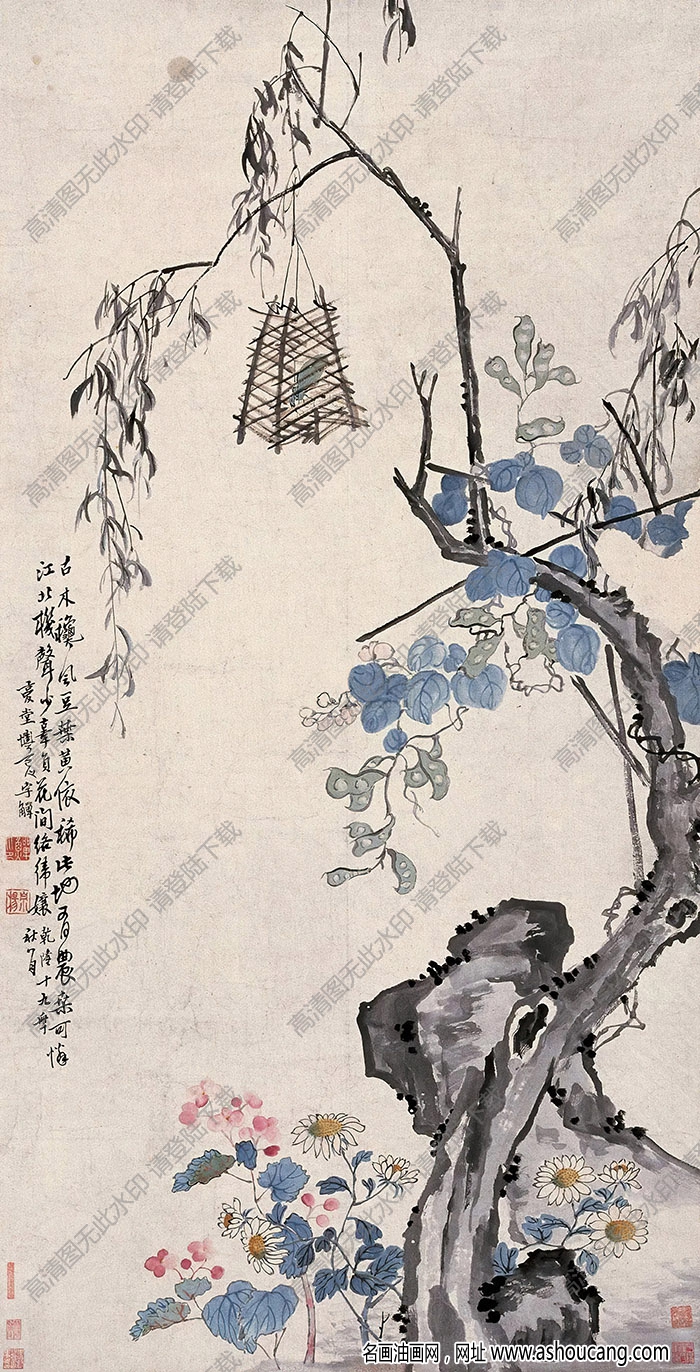 古木穐風豆葉黃依稀此地有農桑可憐
江北機聲少辜負花間絡緯孃 乾隆十九年
秋月
高清图无此水印 请登陆下载
名画油画网，网址 www.ashoucang.com